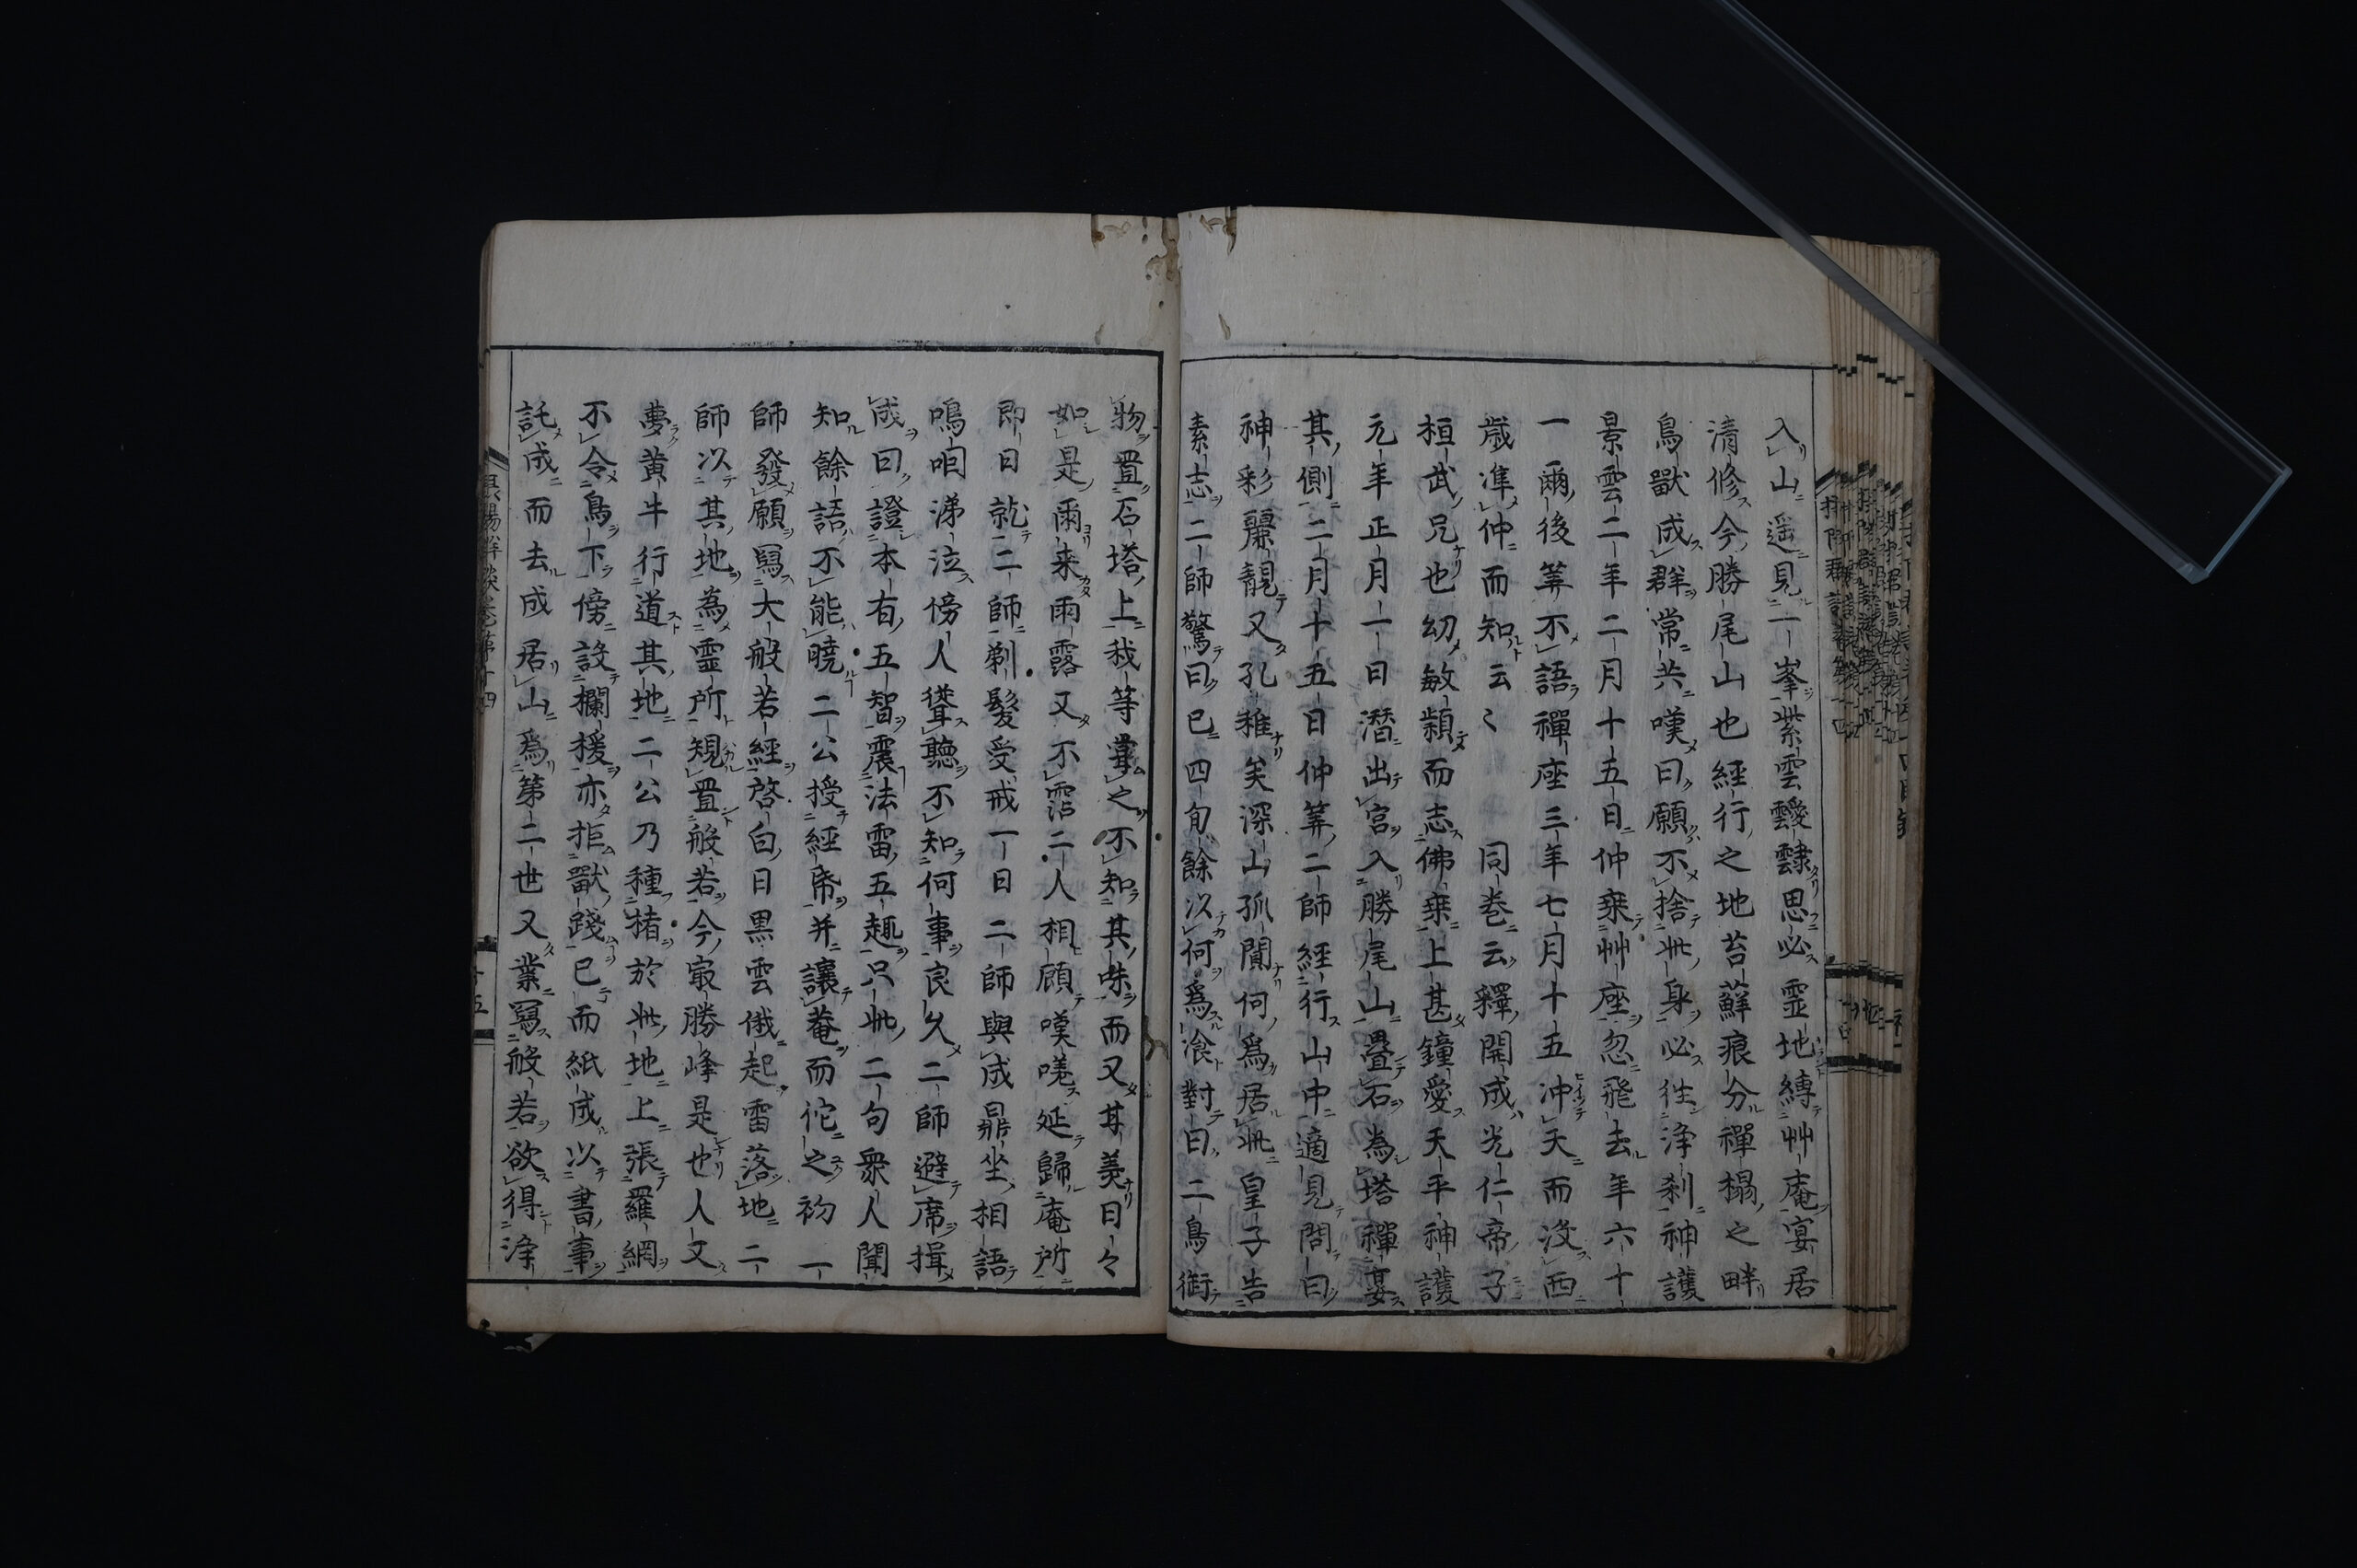 入山遥見一峯紫雲靉靆思必霊地縛艸庵宴居
清修今勝尾山也經行之地苔蘚痕分禪榻之畔
鳥獸成群常共嘆曰願不捨此身必往浄刹神護
景雲二年二月十五日仲乗艸座忽飛去年六十
一爾後筭不語禪座三年七月十五冲天而没西
歳準仲而知云〻 同巻云釋開成光仁帝子
桓武兄也幼敏頴而志佛乗上甚鐘愛天平神護
元年正月一日潜出宮入勝尾山畳石為塔禪宴
其側二月十五日仲筭二師經行山中適見問曰
神彩麗靚又孔稚矣深山孤閴何爲居此皇子告
素志二師驚曰已四旬餘以何爲飡對曰二鳥銜
物置石塔上我等甞之不知其味而又甘美日々
如是爾来雨露又不霑二人相顧嘆嗟延歸庵所
即日就二師剃髪受戒一日二師與成鼎坐相語
鳴咽涕泣傍人聳聽不知何事良久二師避席揖
成曰證本有五智震法雷五趣只此二句衆人聞
知餘語不能曉二公授經帋并讓菴而佗之初一
師發願寫大般若經啓白日黒雲俄起雷落地二
師以其地為霊所規置般若今最勝峰是也人又
夢黄牛行道其地二公乃種楮於此地上張羅網
不令鳥下傍設欄援亦拒獸踐已而紙成以書事
託成而去成居山爲第二世又業寫般若欲得浄
十五